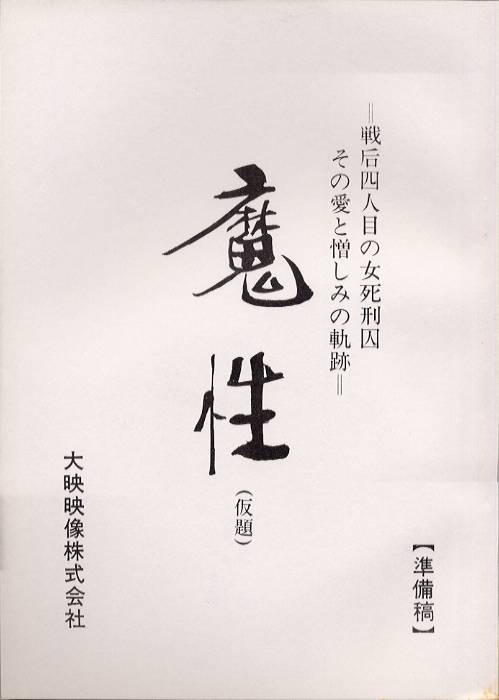 ＝戦后四人目の女死刑囚
その愛と憎しみの軌跡＝
魔性
（仮題）
【準備稿】
大映映像株式会社